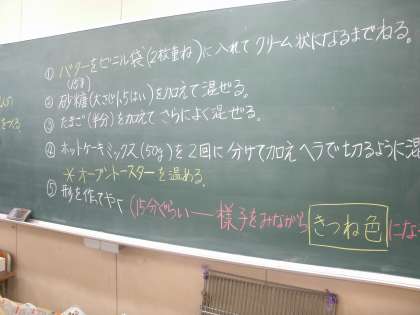 んの
をつくる
① バターをビニル袋(2枚重ね)に入れてクリーム状になるまでねる。
(15g)
② 砂糖(大さじ1.5はい)を加えて混ぜる。
③ たまご(半分)を加えてさらによく混ぜる。
④ ホットケーキミックス(50g)を2回に分けて加えヘラで切るように混
* オーブントースターを温める。
⑤ 形を作ってやく(15分ぐらい— 様子をみながら きつね色 にな